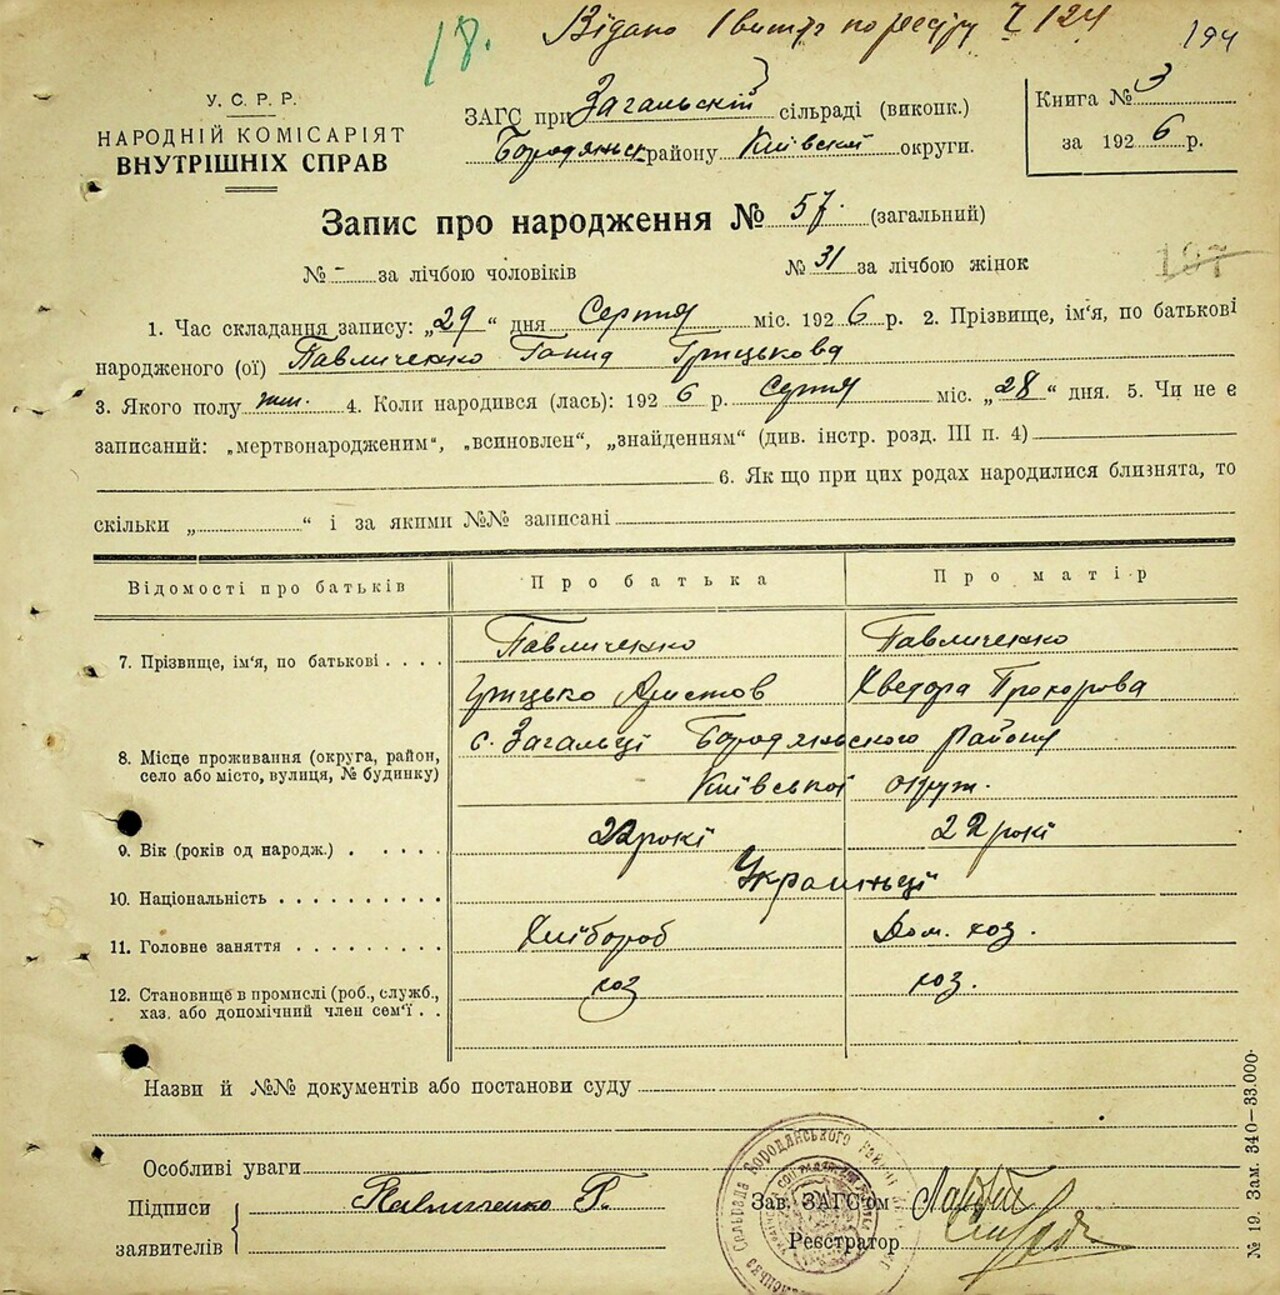 18. Відано 1 витяг по реєстру № 124 194
У. С. Р. Р.
НАРОДНІЙ КОМІСАРІЯТ
ВНУТРІШНІХ СПРАВ
ЗАГС при Загальскій сільраді (виконк.)
Бородянськ району Київскої округи.
Книга № 3
за 1926 р.
Запис про народження № 57. (загальний)
№ - за лічбою чоловіків № 31 за лічбою жінок
197
1. Час складання запису: „29“ дня Серпня міс. 1926 р. 2. Прізвище, ім'я, по батькові
народженого (ої) Павличенко Ганна Грицькова
3. Якого полу жін. 4. Коли народився (лась): 1926 р. Серпня міс. „28“ дня. 5. Чи не є
записаний: „мертвонародженим“, „всиновлен“, „знайденням“ (див. інстр. розд. III п. 4)
6. Як що при цих родах народилися близнята, то
скільки „ “ і за якими №№ записані
Відомості про батьків Про батька Про матір
7. Прізвище, ім'я, по батькові . . . . Павличенко Павличенко
Грицько Хведора Прохорова
8. Місце проживання (округа, район, село або місто, вулиця, № будинку) с. Загальці Бородянського Району
Київської окруж.
9. Вік (років од народж.) . . . . . 22 рокі 22 рокі
10. Національність . . . . . . . . . . Україньці
11. Головне заняття . . . . . . . . . Хлібороб Дом. хоз.
12. Становище в промислі (роб., служб., хаз. або допомічний член сем'ї . . хоз хоз.
Назви й №№ документів або постанови суду
Особливі уваги
Підписи Павличенко Г.
заявителів
Зав. ЗАГС'ом
Реєстратор
Сельрада Бородянського Району
№ 19. Зам. 340—33.000.